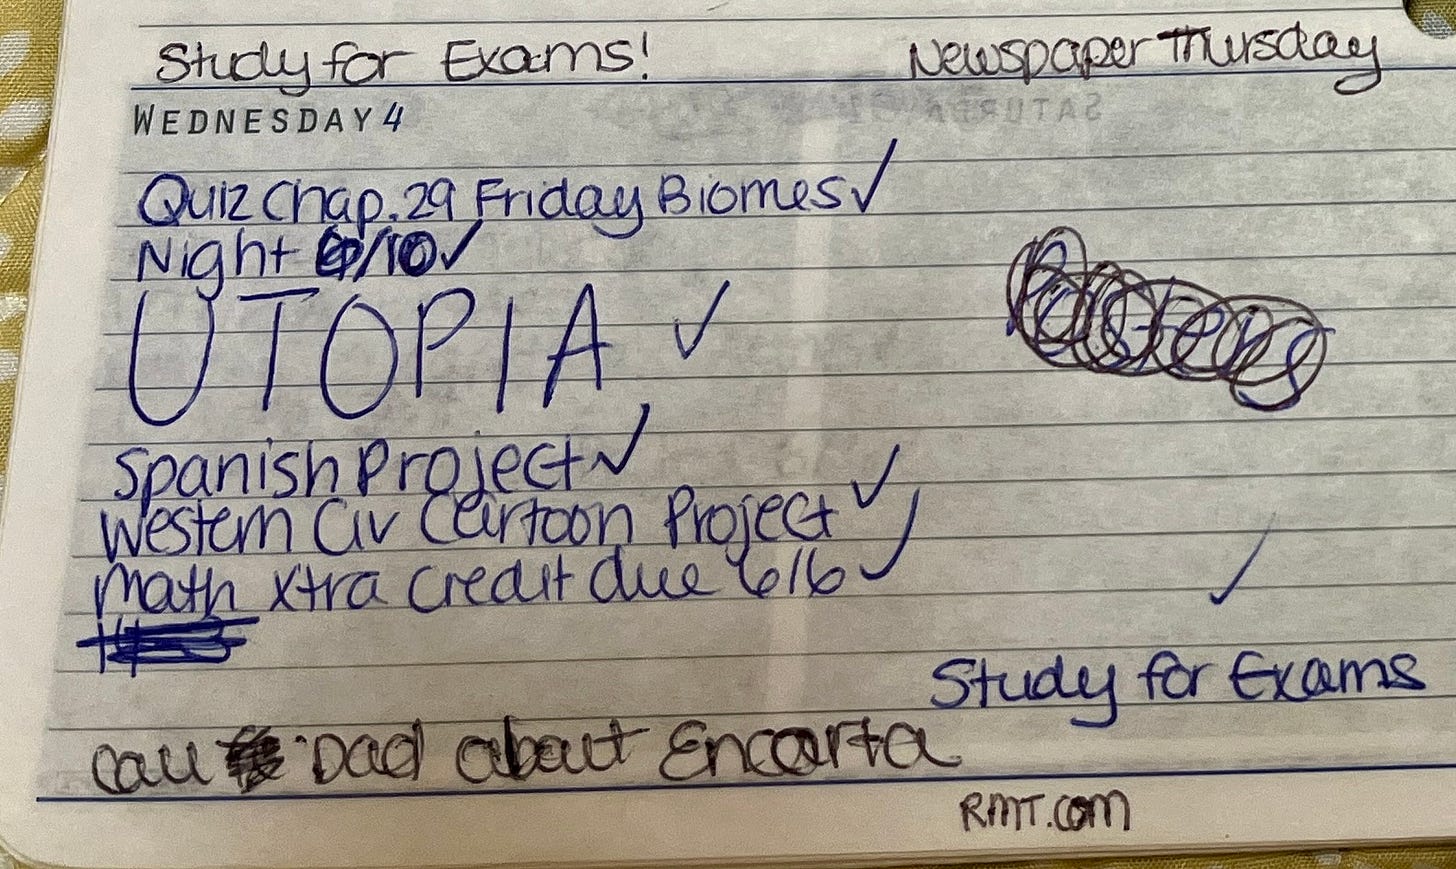 Study for Exams! Newspaper Thursday
WEDNESDAY 4
SATURDAY
Quiz Chap. 29 Friday Biomes ✓
Night ✓
UTOPIA ✓
Spanish Project ✓
Western Civ Cartoon Project ✓
Math Xtra Credit due 6/6 ✓
✓
Study for Exams
Call Dad about Encarta
RMT.com